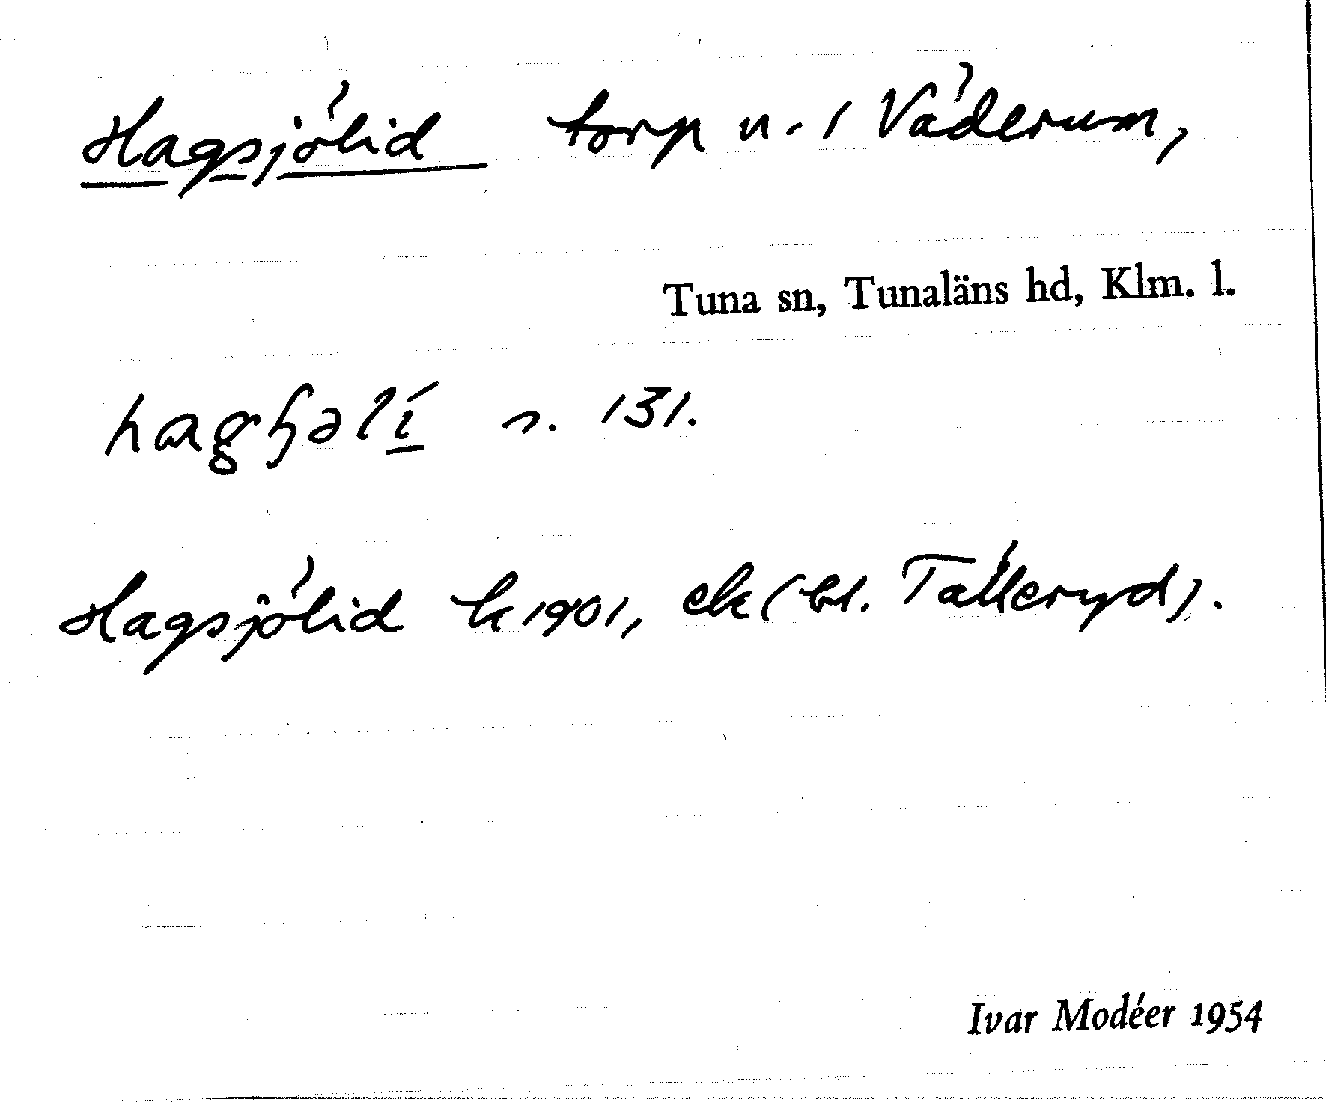 Hagsjölid torp u. 1 Väderum,
Tuna sn, Tunaläns hd, Klm. l.
s. 131.
Hagsjölid k 1901, ek (bl. Tälleryd).
Ivar Modéer 1954